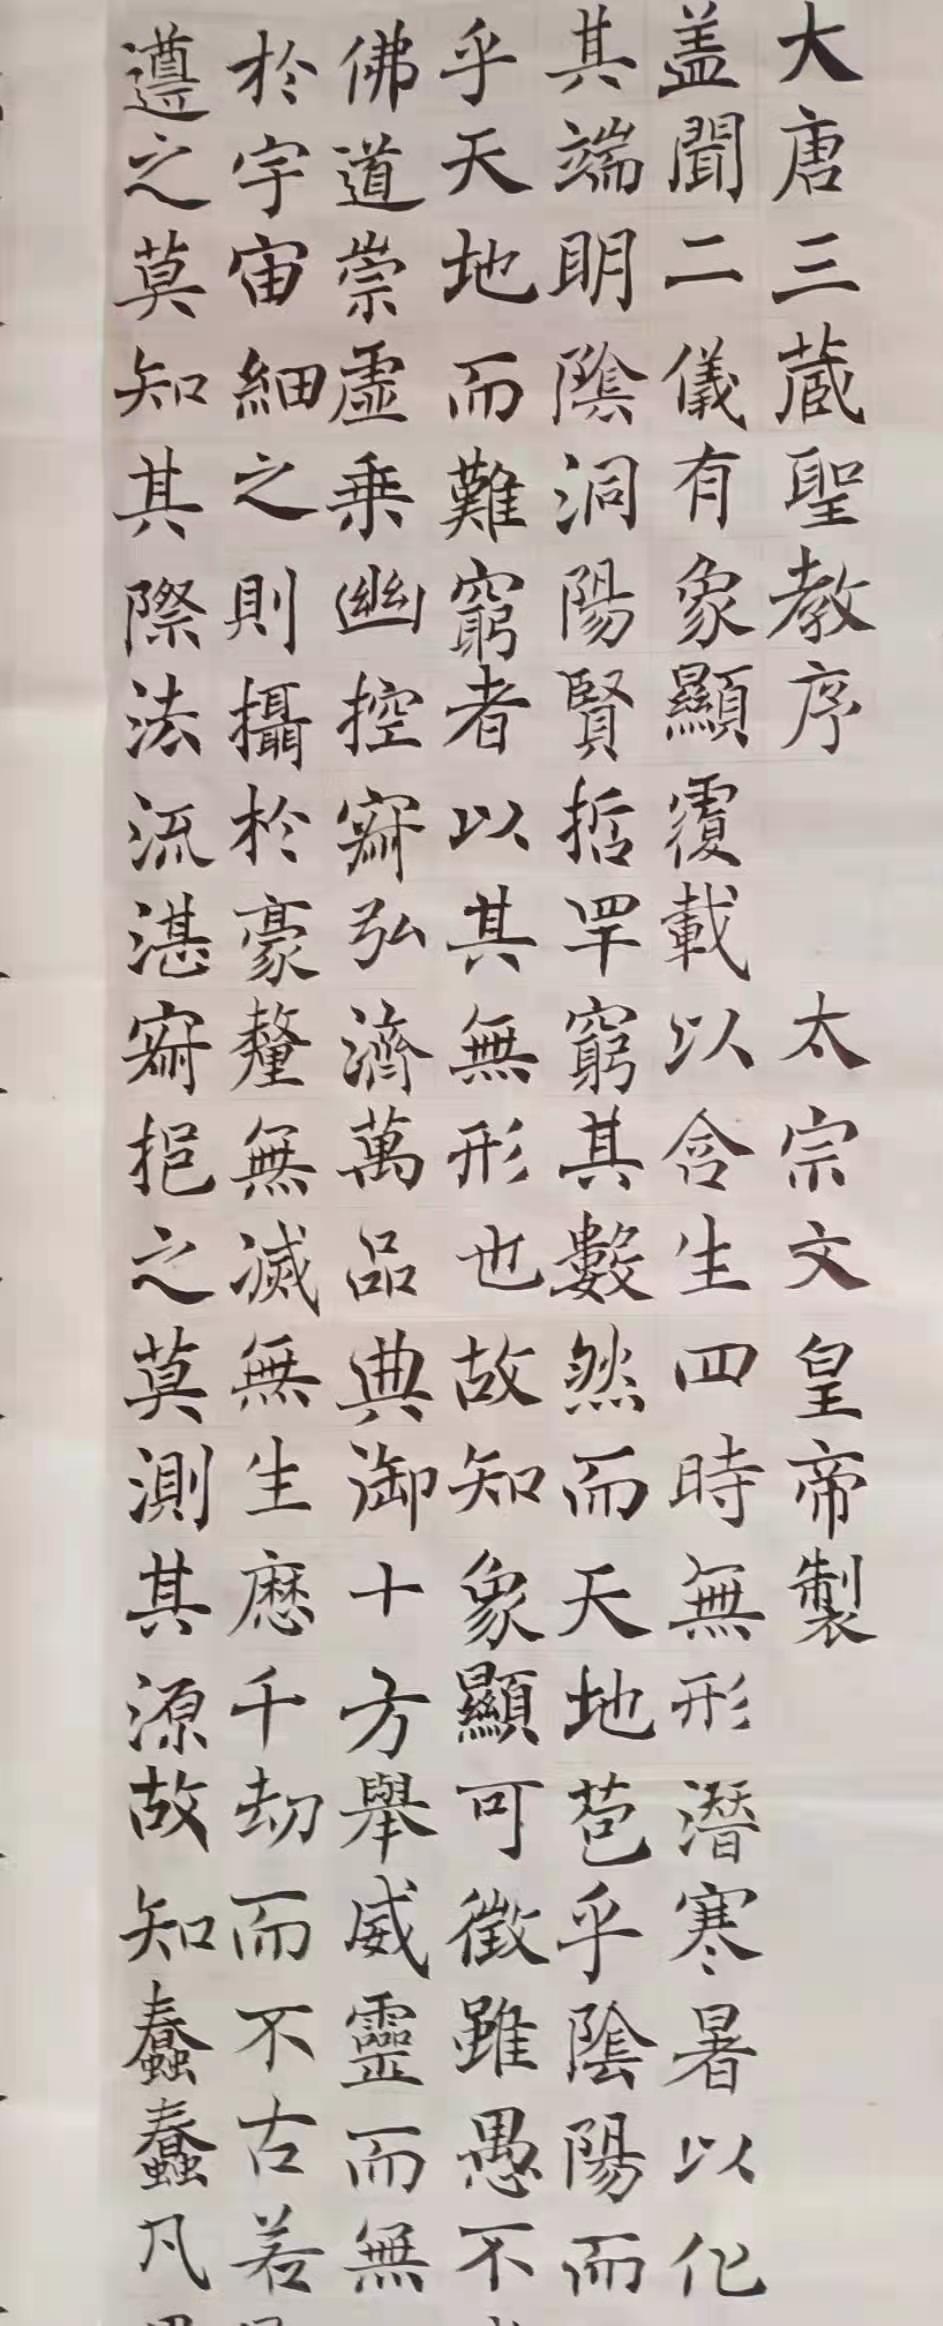 大唐三蔵聖教序 太宗文皇帝製
盖聞二儀有象顯覆載以含生四時無形潛寒暑以化
其端明陰洞陽賢哲罕窮其數然而天地苞乎陰陽而
乎天地而難窮者以其無形也故知象顯可徵雖愚不
佛道崇虛乗幽控寂弘濟萬品典御十方舉威靈而無
於宇宙細之則攝於豪釐無滅無生歷千劫而不古若
遵之莫知其際法流湛寂挹之莫測其源故知蠢蠢凡